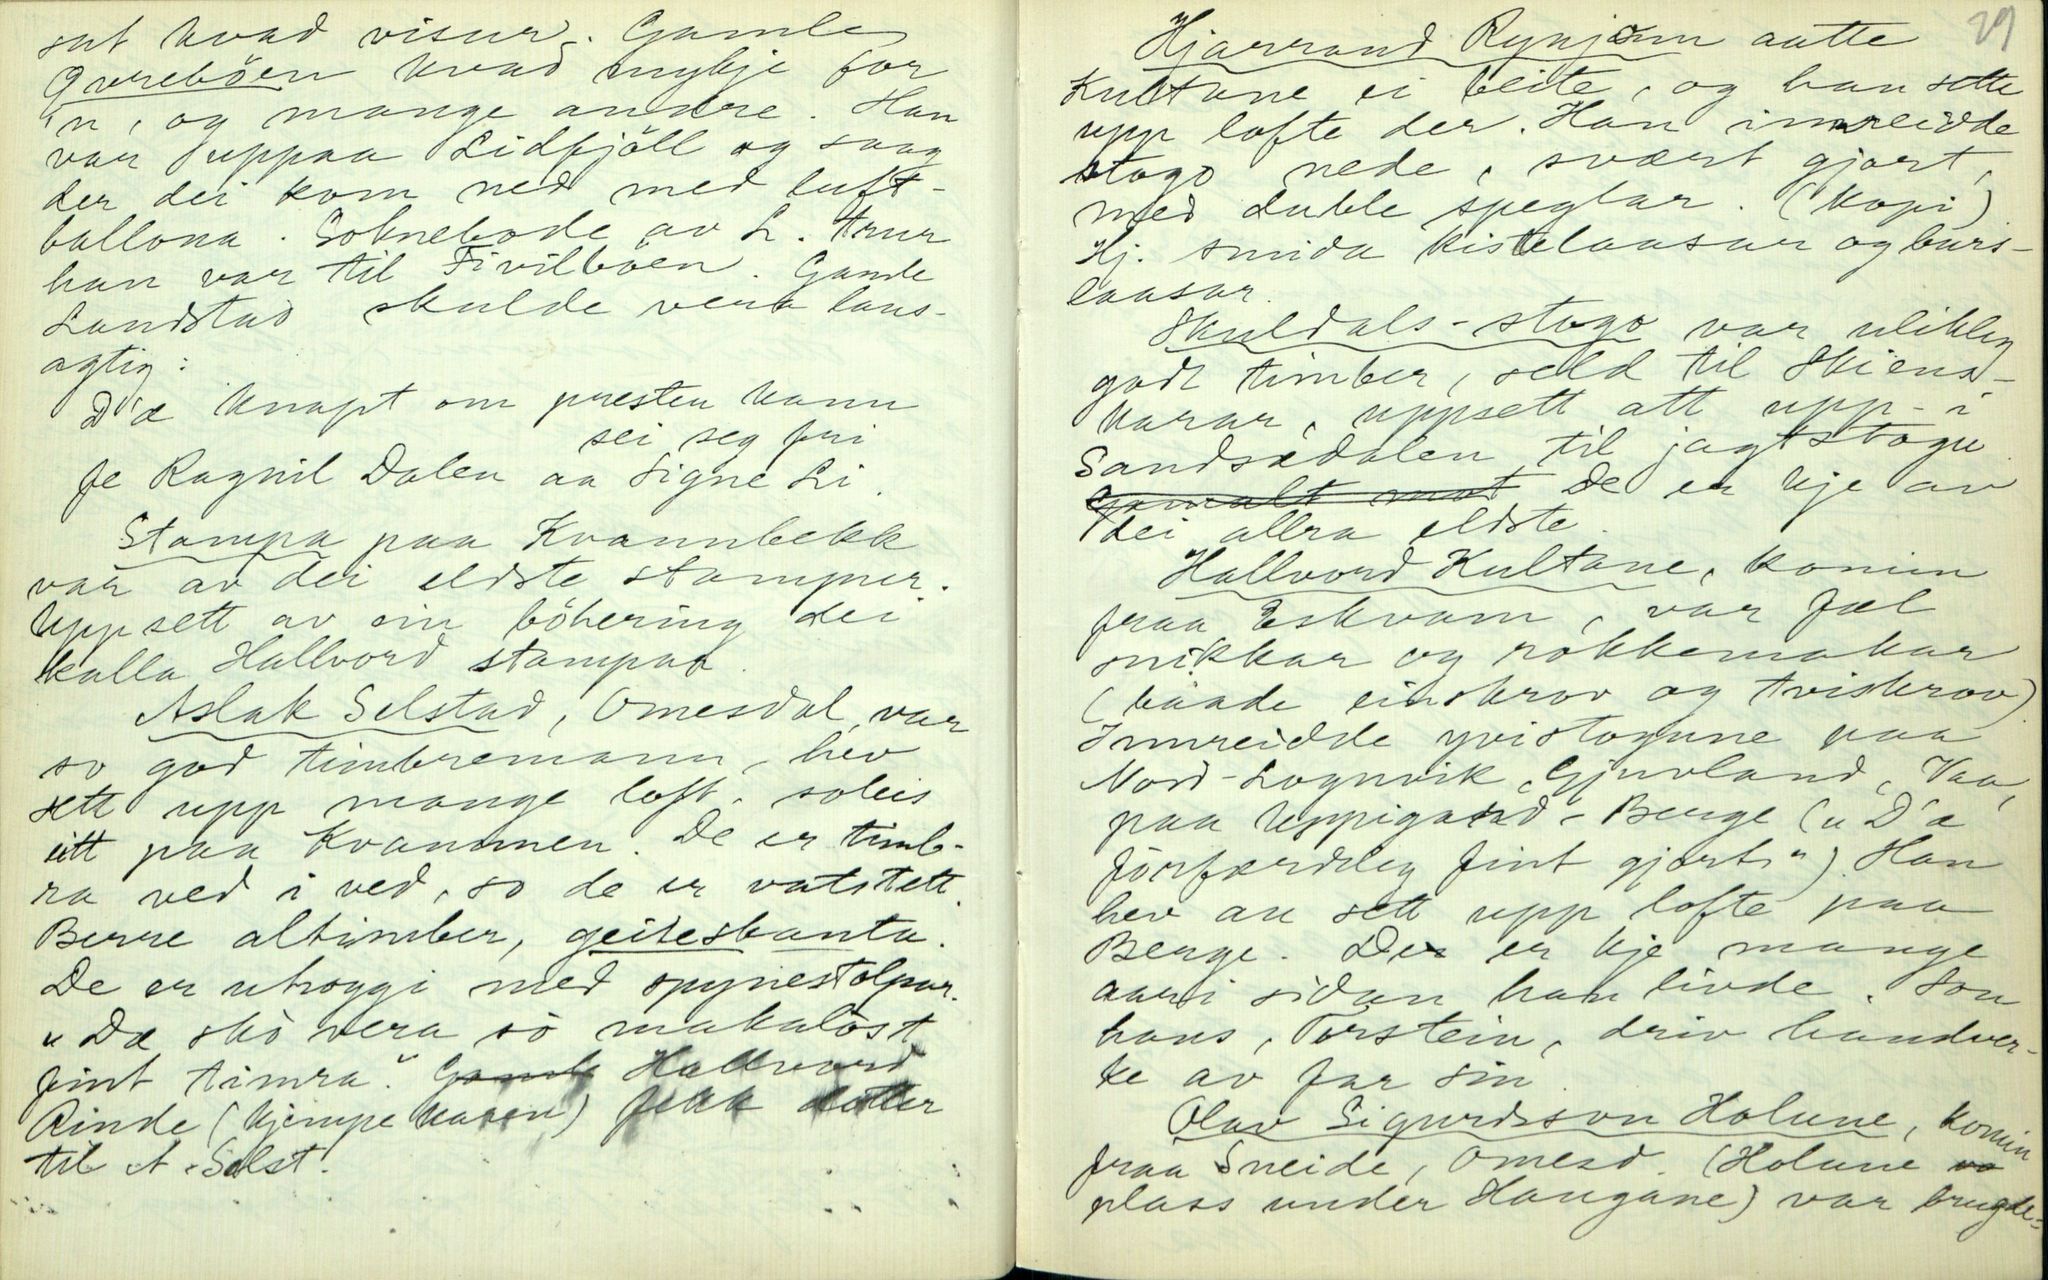 sat kvad visur. Gamle
Qvrebøen kvad mykje for
'n, og mange andre. Han
var uppaa Lidfjöll og saag
der dei kom ned med luft-
ballona. Soknebode av L. trur
han var til Fivilbøen. Gamle
Landstad skulde vera laus-
agtig:
D'æ knapt om presten kann
sei seg fri
fe Ragnil Dalen aa Signe Li.
Stampa paa Kvannbekk
var av dei eldste stampur.
Uppsett av ein böhering dei
kalla Hallvord stampar.
Aslak Selstad, Omesdal, var
so god timbremann, hev
sett upp mange loft. soleis
eitt paa Kvammen. De er timb-
ra ved i ved, so de er vatstett.
Berre altimber, geitesbanta.
De er uthoggi med spynestolpar.
"Dæ sko vera so makalöst
fint timra." Gamle Hallvord
Rinde (kjempekaren) fekk dotter
til A. Selst.
29
Hjarrand Rynjom aatte
Kultane ei leite, og han sette
upp lofte der. Han innreidde
stogo nede, svært gjort,
med duble speglar. (kopi)
Hj. smida kistelaasar og burs-
laasar.
Skuldals-stogo var ulikleg
godt timber, seld til Skiens-
karar, uppsett att upp-i
Sandsædalen til jagtstogu.
Gamalt mat De er kje av
dei allra eldste.
Hallvord Kultane, komin
fraa Eskvam, var fæl
snikkar og rokkemakar
(baade einskrov og tviskrov)
Innreidde yvistogune paa
Nord-Lognvik, Gjuvland, Vaa,
paa Uppigard-Berge ("D'æ
förfærdeleg fint gjort"). Han
hev au sett upp lofte paa
Berge. Der er kje mange
aari sidan han livde. Son
hans, Torstein, driv handver-
ke av far sin.
Olav Sigurdsson Holune, komin
fraa Sneide, Omesd. (Holune va
plass under Haugane) var brugde-